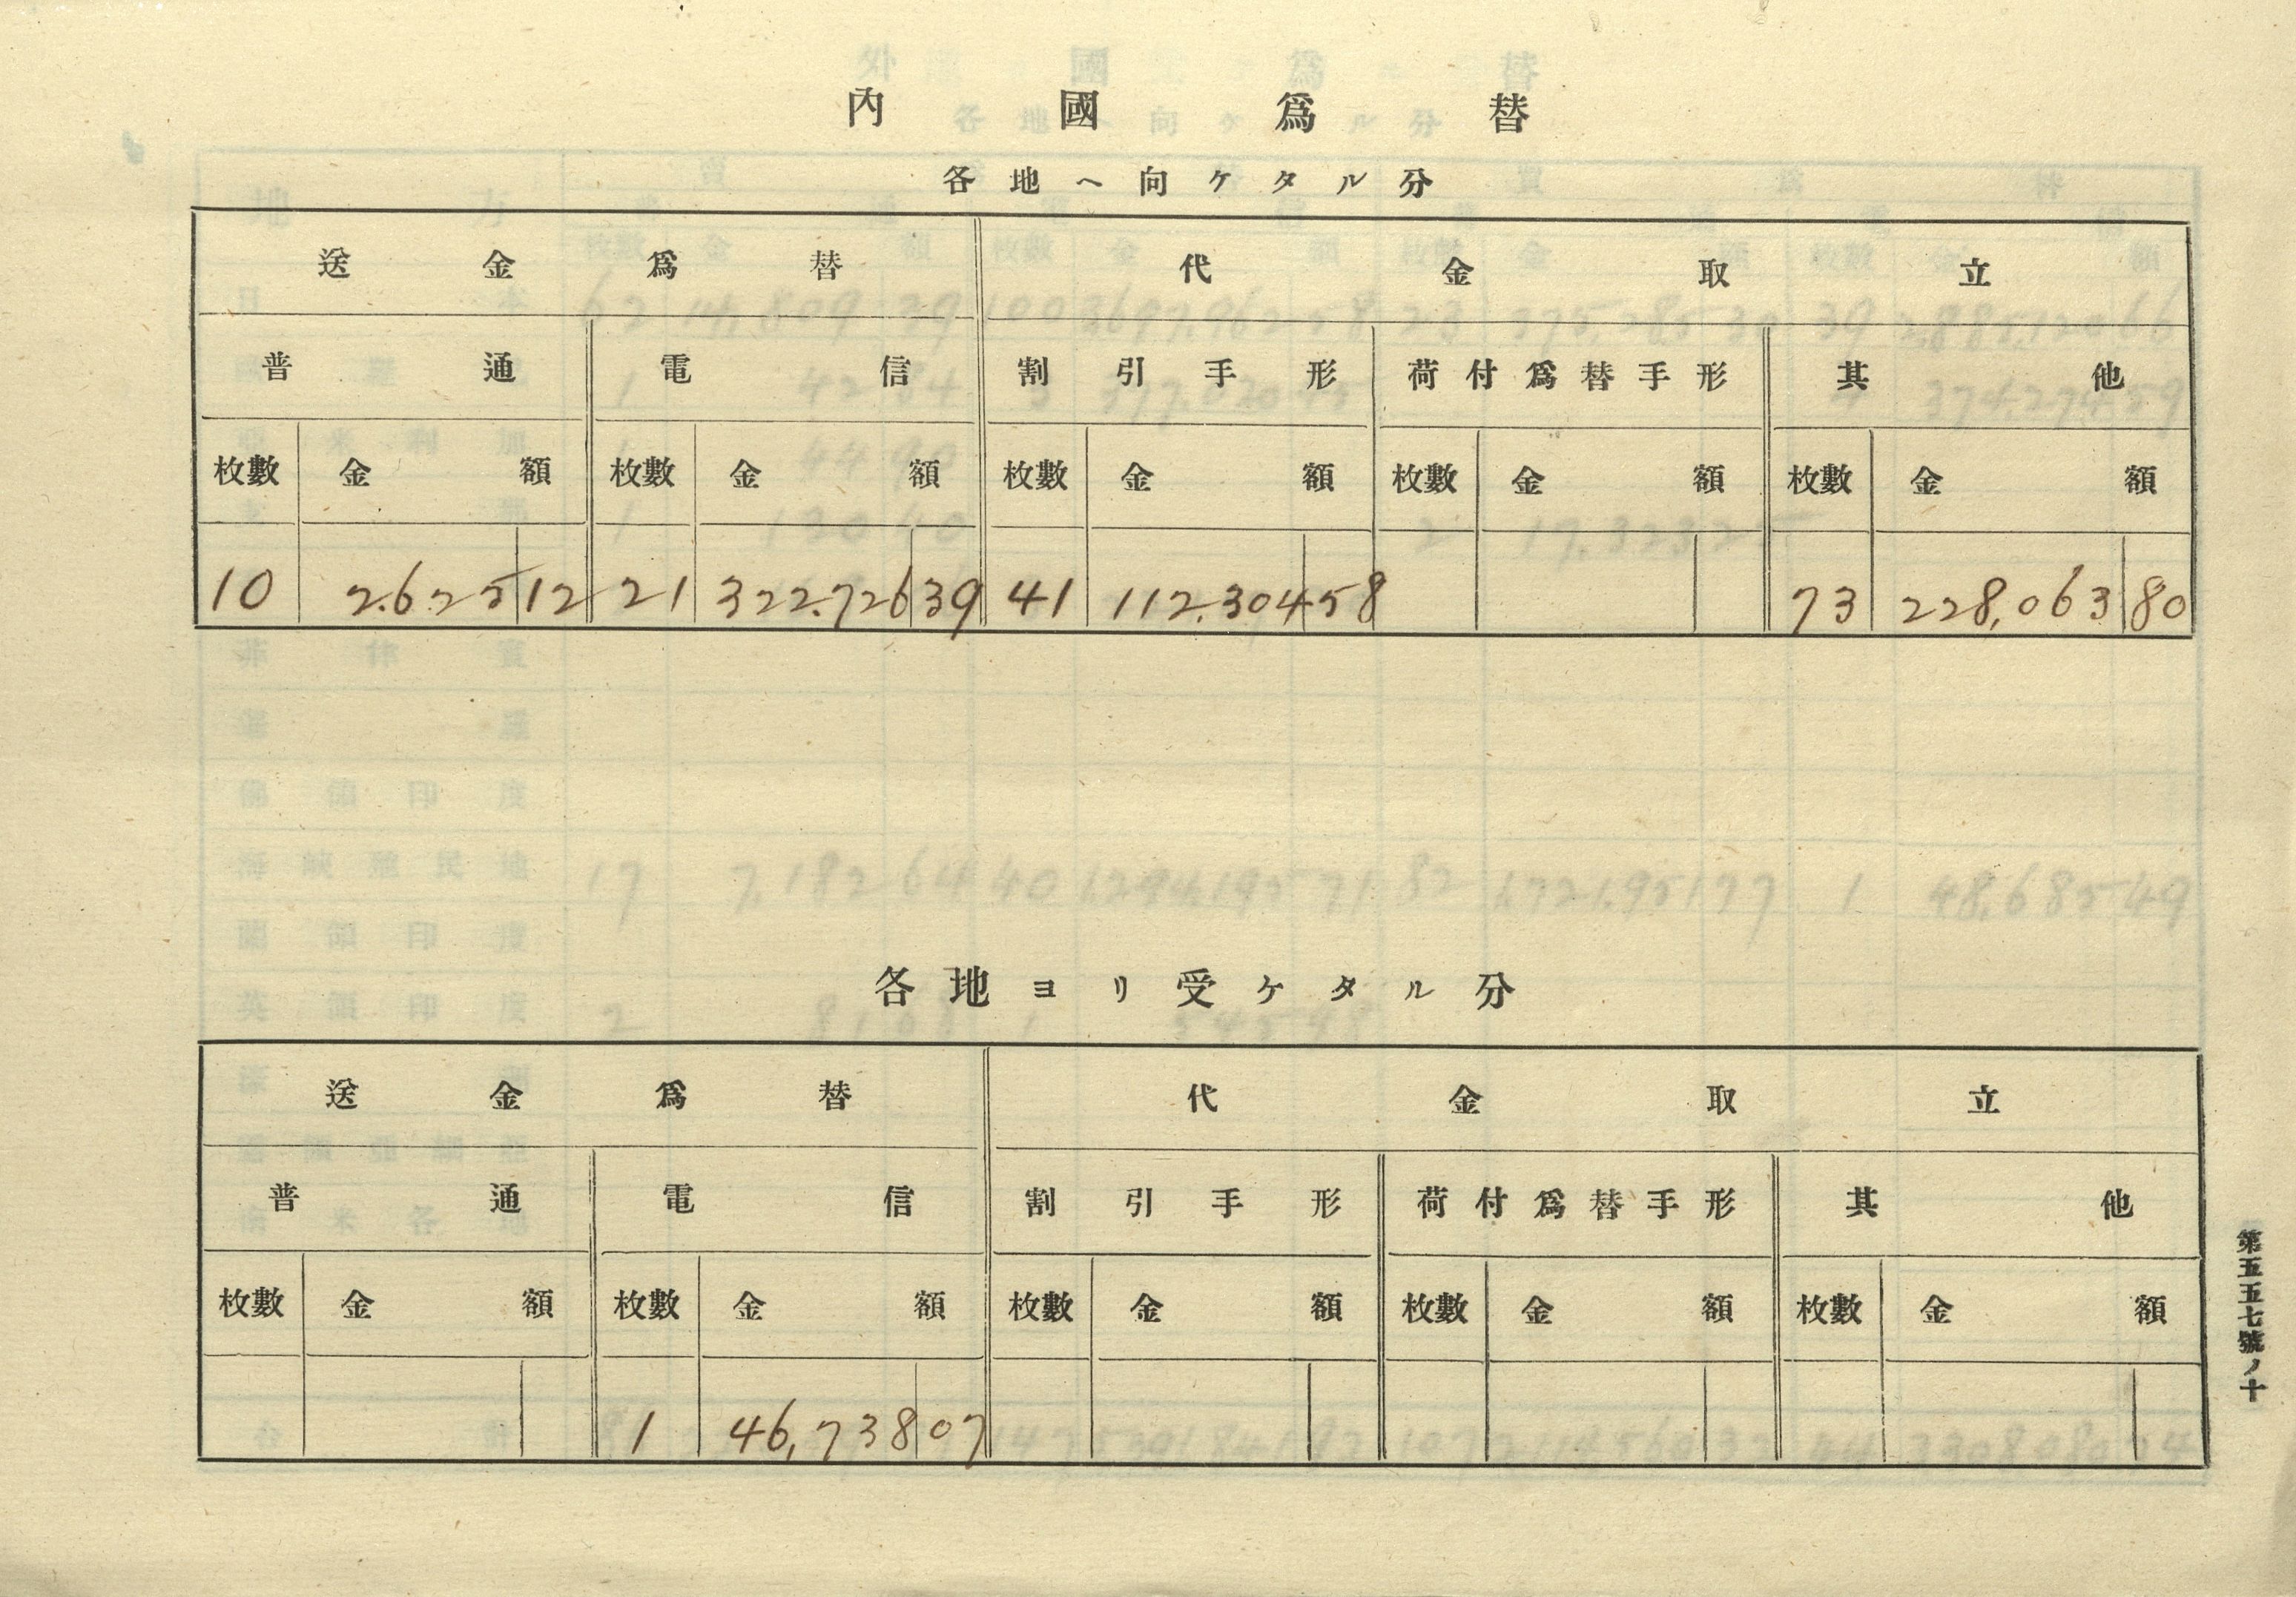 內國爲替
各地ヘ向ケタル分
送金爲替 代金取立
普通 電信 割引手形 荷付爲替手形 其他
枚數 金額 枚數 金額 枚數 金額 枚數 金額 枚數 金額
10 2.625 12 21 322.726 39 41 112.304 58 73 228,063 80
各地ヨリ受ケタル分
送金爲替 代金取立
普通 電信 割引手形 荷付爲替手形 其他
枚數 金額 枚數 金額 枚數 金額 枚數 金額 枚數 金額
1 46,738 07
第五五七號ノ十